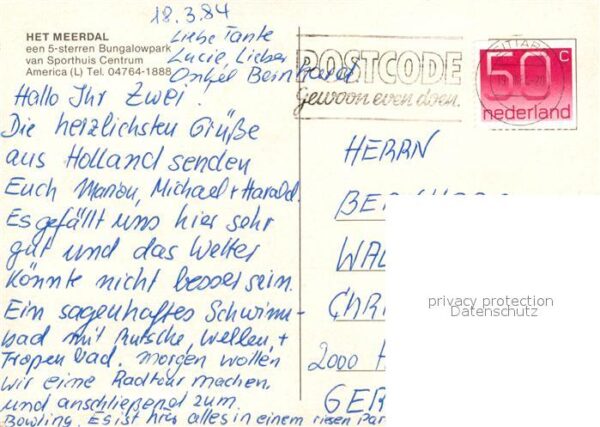 18.3.84
HET MEERDAL
een 5-sterren Bungalowpark
van Sporthuis Centrum
America (L) Tel. 04764-1888
Liebe Tante
Lucie, Lieber
Onkel Bernhard
Hallo Ihr Zwei!
Die herzlichsten Grüße
aus Holland senden
Euch Marion, Michael + Harald.
Es gefällt uns hier sehr
gut und das Wetter
könnte nicht besser sein.
Ein sagenhaftes Schwimm-
bad mit Rutsche, Wellen, +
Tropenbad. Morgen wollen
wir eine Radtour machen,
und anschließend zum
Bowling. Es ist hier alles in einem riesen Par
POSTCODE
Gewoon even doen.
SITTARD
50 c
nederland
HERRN
BE
WAL
CHR
2000
GER
privacy protection
Datenschutz